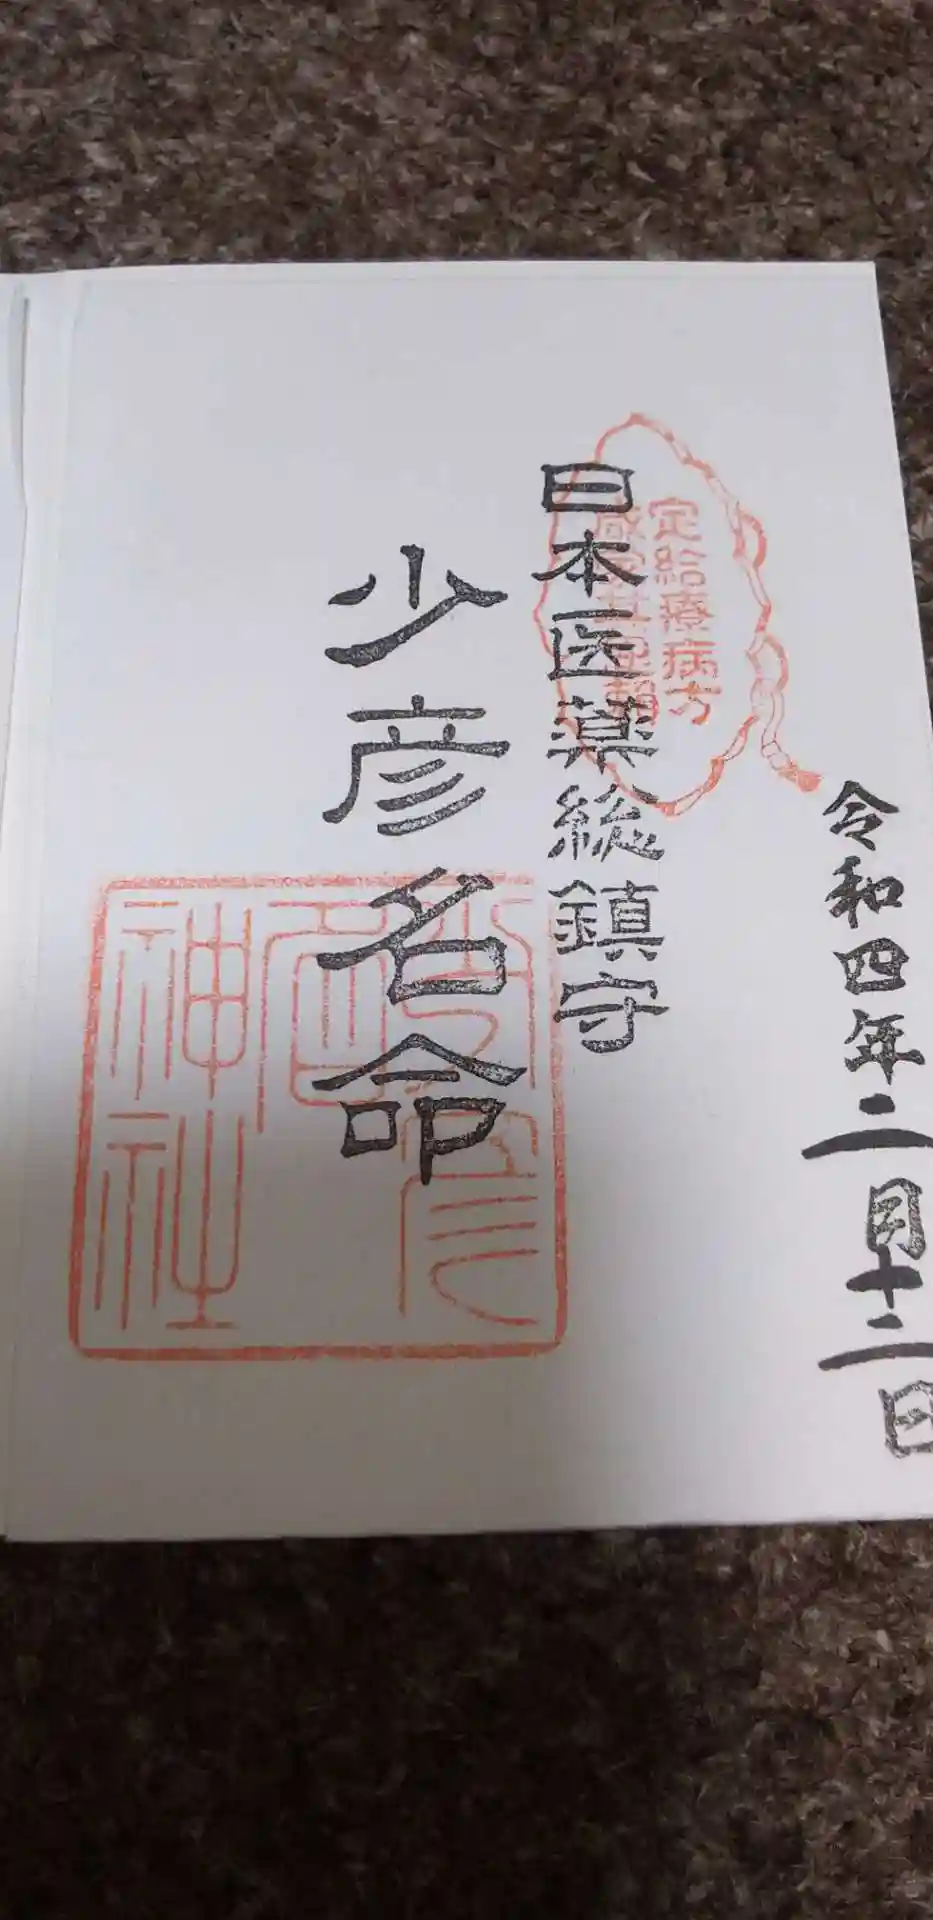 令和四年二月十二日
定給療病方
咸蒙其恩頼
日本医薬総鎮守
少彦名命
少彦名神社